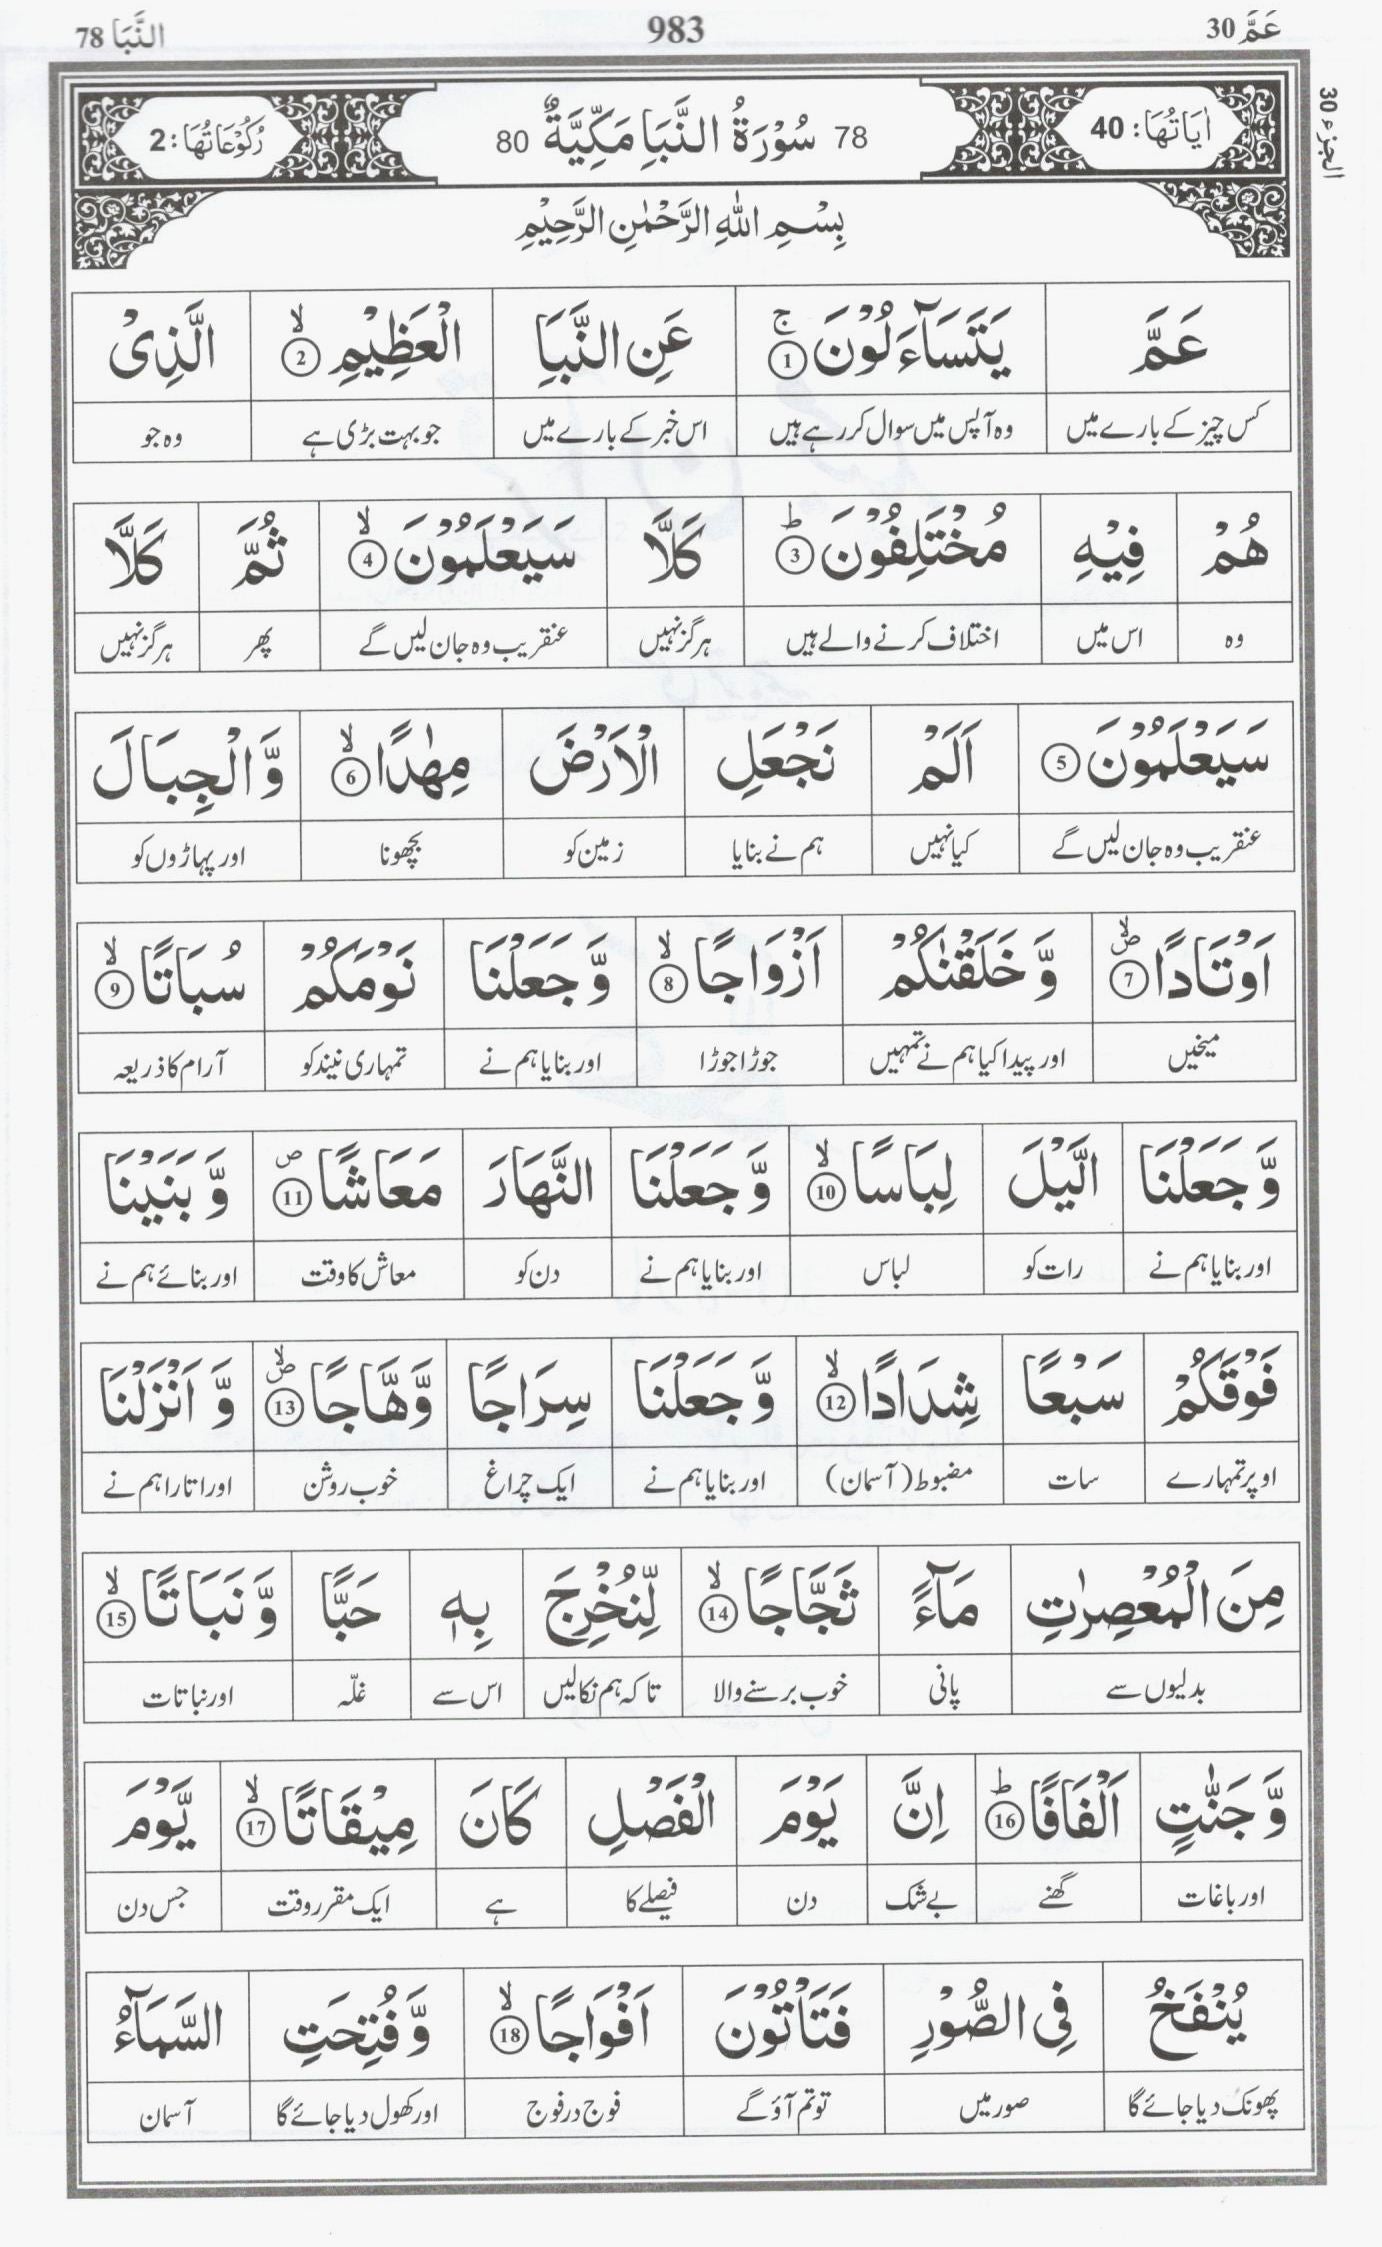 عَمَّ 30 983 النَّبَا 78
الجزء 30
اٰيَاتُهَا: 40 78 سُوْرَةُ النَّبَاِ مَكِّيَّةٌ 80 رُكُوْعَاتُهَا: 2
بِسْمِ اللّٰهِ الرَّحْمٰنِ الرَّحِيْمِ
عَمَّ يَتَسَآءَلُوْنَ ۚ 1 عَنِ النَّبَاِ الْعَظِيْمِ ۙ 2 الَّذِىْ
کس چیز کے بارے میں وہ آپس میں سوال کر رہے ہیں اس خبر کے بارے میں جو بہت بڑی ہے وہ جو
هُمْ فِيْهِ مُخْتَلِفُوْنَ ؕ 3 كَلَّا سَيَعْلَمُوْنَ ۙ 4 ثُمَّ كَلَّا
وہ اس میں اختلاف کرنے والے ہیں ہرگز نہیں عنقریب وہ جان لیں گے پھر ہرگز نہیں
سَيَعْلَمُوْنَ 5 اَلَمْ نَجْعَلِ الْاَرْضَ مِهٰدًا ۙ 6 وَّ الْجِبَالَ
عنقریب وہ جان لیں گے کیا نہیں ہم نے بنایا زمین کو بچھونا اور پہاڑوں کو
اَوْتَادًا ۪ۙ 7 وَّ خَلَقْنٰكُمْ اَزْوَاجًا ۙ 8 وَّ جَعَلْنَا نَوْمَكُمْ سُبَاتًا ۙ 9
میخیں اور پیدا کیا ہم نے تمہیں جوڑا جوڑا اور بنایا ہم نے تمہاری نیند کو آرام کا ذریعہ
وَّ جَعَلْنَا الَّيْلَ لِبَاسًا ۙ 10 وَّ جَعَلْنَا النَّهَارَ مَعَاشًا ۪ 11 وَّ بَنَيْنَا
اور بنایا ہم نے رات کو لباس اور بنایا ہم نے دن کو معاش کا وقت اور بنائے ہم نے
فَوْقَكُمْ سَبْعًا شِدَادًا ۙ 12 وَّ جَعَلْنَا سِرَاجًا وَّهَّاجًا ۪ۙ 13 وَّ اَنْزَلْنَا
اوپر تمہارے سات مضبوط (آسمان) اور بنایا ہم نے ایک چراغ خوب روشن اور اتارا ہم نے
مِنَ الْمُعْصِرٰتِ مَآءً ثَجَّاجًا ۙ 14 لِّنُخْرِجَ بِهٖ حَبًّا وَّ نَبَاتًا ۙ 15
بدلیوں سے پانی خوب برسنے والا تاکہ ہم نکالیں اس سے غلّہ اور نباتات
وَّ جَنّٰتٍ اَلْفَافًا ؕ 16 اِنَّ يَوْمَ الْفَصْلِ كَانَ مِيْقَاتًا ۙ 17 يَّوْمَ
اور باغات گھنے بے شک دن فیصلے کا ہے ایک مقرر وقت جس دن
يُنْفَخُ فِى الصُّوْرِ فَتَاْتُوْنَ اَفْوَاجًا ۙ 18 وَّ فُتِحَتِ السَّمَآءُ
پھونک دیا جائے گا صور میں تو تم آؤ گے فوج در فوج اور کھول دیا جائے گا آسمان